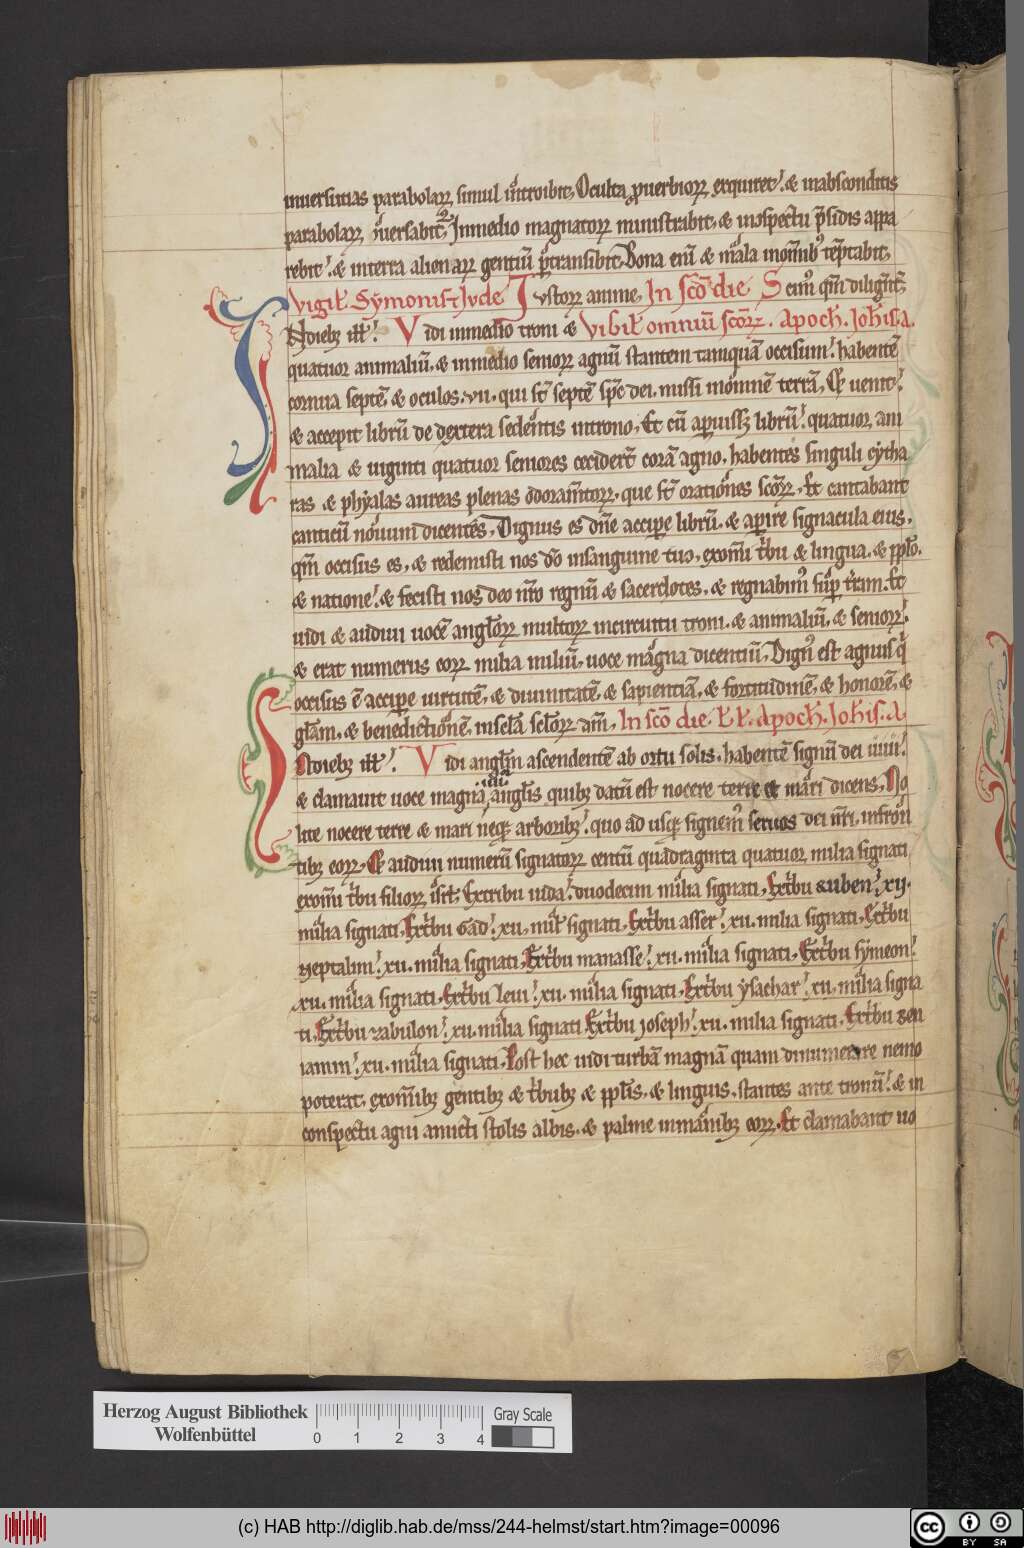 inuersutias parabolaꝝ simul ĩtroibit. Occulta ꝓuerbioꝝ exquiret. ⁊ inabsconditis
parabolaꝝ ꝯuersabit᷑. Inmedio magnatoꝝ ministrabit. ⁊ inꝯspectu p̃sidis appa
rebit. ⁊ interra alienaꝝ gentiũ ꝑtransibit. Bona eni ⁊ mala inomĩbꝰ tẽptabit.
Vigil̃. Symonis ⁊ Jude Iustoꝝ anime. In sc̃o die Scimꝰ qm̃ diligẽtĩb.
INdiebꝫ ill̃. Vidi inmedio troni ⁊ Vi bil̃ omniũ sc̃oꝝ. Apoch̃. Joh̃is. a.
quatuor animaliũ. ⁊ inmedio senioꝝ agnũ stantem tamquã occisum. habentẽ
cornua septẽ ⁊ oculos .vii. qui st̃ septẽ sp̃c dei. missi inomnẽ terrã. Et uenit.
⁊ accepit librũ de dextera sedentis introno. Et cũ aꝑuissꝫ librũ. quatuor ani
malia ⁊ uiginti quatuor seniores cecidert̃ corã agno. habentes singuli cytha
ras ⁊ phyalas aureas plenas odoram̃toꝝ. que st̃ orationes sc̃oꝝ. Et cantabant
canticũ nouum dicentes. Dignus es dñe accipe librũ. ⁊ aꝑire signacula eius.
qm̃ occisus es. ⁊ redemisti nos dõ insanguine tuo. exom̃i tribu ⁊ lingua. ⁊ ppl̃o.
⁊ natione. ⁊ fecisti nos deo nr̃o regnũ ⁊ sacerdotes. ⁊ regnabimꝰ sup̃ tr̃am. Et
uidi ⁊ audiui uocẽ angl̃oꝝ multoꝝ incircuitu troni. ⁊ animaliũ. ⁊ senioꝝ.
⁊ erat numerus eoꝝ milia miliũ. uoce magna dicentiũ. Dignꝰ est agnus q̃
occisus ẽ accipe uirtutẽ. ⁊ diuinitatẽ ⁊ sapientiã. ⁊ fortitudinẽ. ⁊ honorẽ. ⁊
gl̃am. ⁊ benedictionẽ. insc̃la sc̃loꝝ. am̃. In sc̃o die. l̃. l̃. Apoch̃. Joh̃is. a.
INdiebꝫ ill̃. Vidi angl̃m ascendentẽ ab ortu solis. habentẽ signũ dei uiui.
⁊ clamauit uoce magna .iiiior. angl̃is quibꝫ datũ est nocere terre et mari dicens. No
lite nocere terre ⁊ mari neqꝫ arboribꝫ. quo ad usqꝫ signemꝰ seruos dei nr̃i. infron
tibꝫ eoꝝ. Et audiui numerũ signatoꝝ centũ quadraginta quatuor milia signati
exom̃i tribu filioꝝ isr̃l. Extribu iuda. duodecim milia signati. Extribu ruben. xii.
milia signati. Extribu Gad. xii. mil̃ signati. Extribu asser. xii. milia signati. Extribu
Neptalim. xii. milia signati. Extribu manasse. xii. milia signati. Extribu symeon.
xii. milia signati. Extribu leui. xii. milia signati. Extribu ysachar. xii. milia signa
ti. Extribu zabulon. xii. milia signati Extribu Joseph. xii. milia signati. Extribu ben
iamin. xii. milia signati. Post hec uidi turbã magnã quam dinumerare nemo
poterat. exom̃ibꝫ gentibꝫ ⁊ tribubꝫ ⁊ ppl̃is. ⁊ linguis. stantes ante tronũ. ⁊ in
conspectu agni amicti stolis albis. ⁊ palme inmanibꝫ eoꝝ. Et clamabant uo
Herzog August Bibliothek
Wolfenbüttel
0 1 2 3 4
Gray Scale
(c) HAB http://diglib.hab.de/mss/244-helmst/start.htm?image=00096
cc BY SA